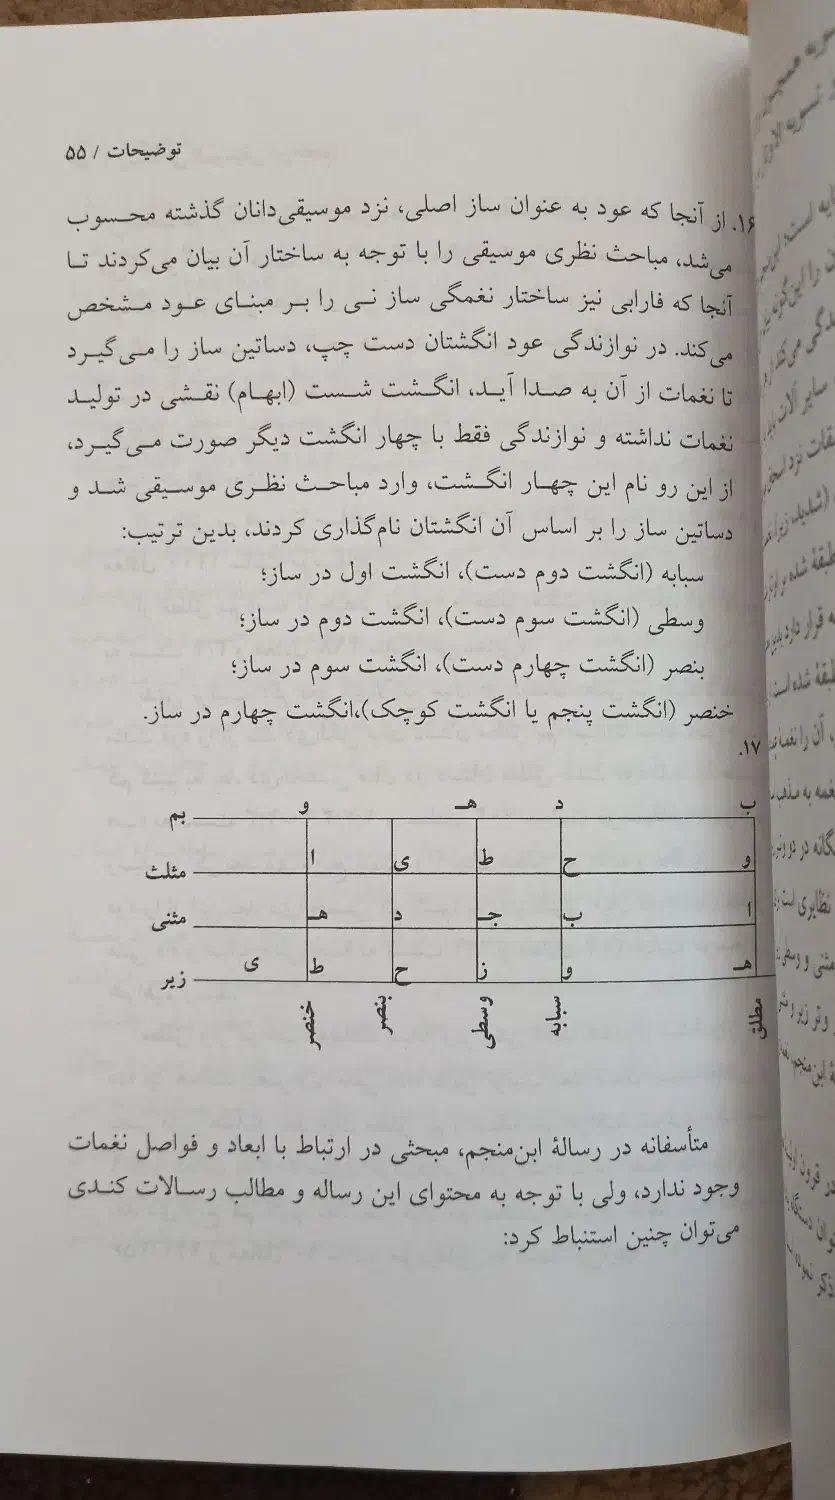 توضیحات / ۵۵
۱۶. از آنجا که عود به عنوان ساز اصلی، نزد موسیقی‌دانان گذشته محسوب
می‌شد، مباحث نظری موسیقی را با توجه به ساختار آن بیان می‌کردند تا
آنجا که فارابی نیز ساختار نغمگی ساز نی را بر مبنای عود مشخص
می‌کند. در نوازندگی عود انگشتان دست چپ، دساتین ساز را می‌گیرد
تا نغمات از آن به صدا آید، انگشت شست (ابهام) نقشی در تولید
نغمات نداشته و نوازندگی فقط با چهار انگشت دیگر صورت می‌گیرد،
از این رو نام این چهار انگشت، وارد مباحث نظری موسیقی شد و
دساتین ساز را بر اساس آن انگشتان نام‌گذاری کردند، بدین ترتیب:
سبابه (انگشت دوم دست)، انگشت اول در ساز؛
وسطی (انگشت سوم دست)، انگشت دوم در ساز؛
بنصر (انگشت چهارم دست)، انگشت سوم در ساز؛
خنصر (انگشت پنجم یا انگشت کوچک)،انگشت چهارم در ساز.
۱۷.
ب د هـ و بم
و ح ط ی ا مثلث
ا ب جـ د هـ مثنی
هـ و ز ح ط ی زیر
مطلق سبابه وسطی بنصر خنصر
متأسفانه در رسالهٔ ابن‌منجم، مبحثی در ارتباط با ابعاد و فواصل نغمات
وجود ندارد، ولی با توجه به محتوای این رساله و مطالب رسالات کندی
می‌توان چنین استنباط کرد: